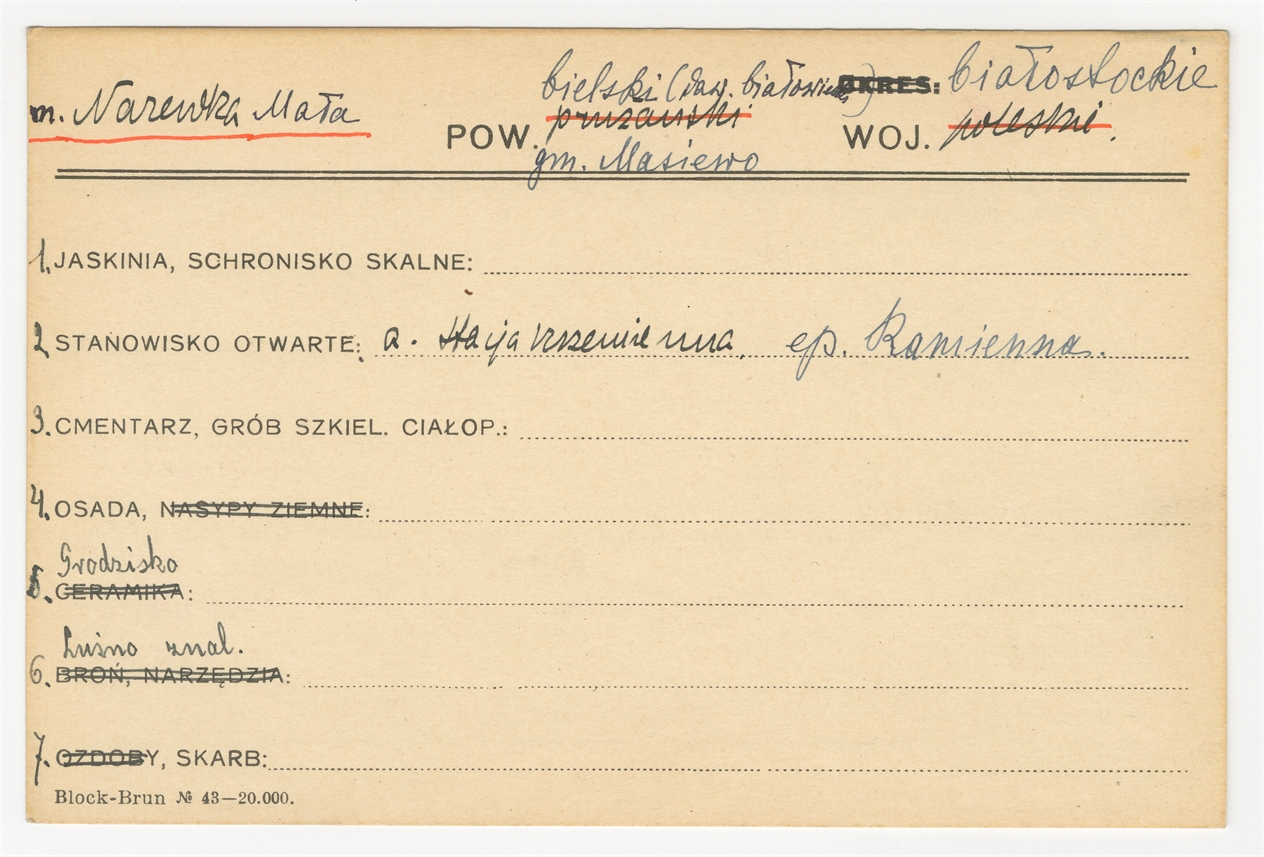 bielski (daw. białowieski) OKRES: białostockie
m. Narewka Mała POW. prużański WOJ. poleskie.
gm. Masiewo
1. JASKINIA, SCHRONISKO SKALNE:
2. STANOWISKO OTWARTE: a. Stacja krzemienna, ep. Kamienna.
3. CMENTARZ, GRÓB SZKIEL. CIAŁOP.:
4. OSADA, NASYPY ZIEMNE:
Grodzisko
5. CERAMIKA:
Luźno znal.
6. BROŃ, NARZĘDZIA:
7. OZDOBY, SKARB:
Block-Brun № 43—20.000.